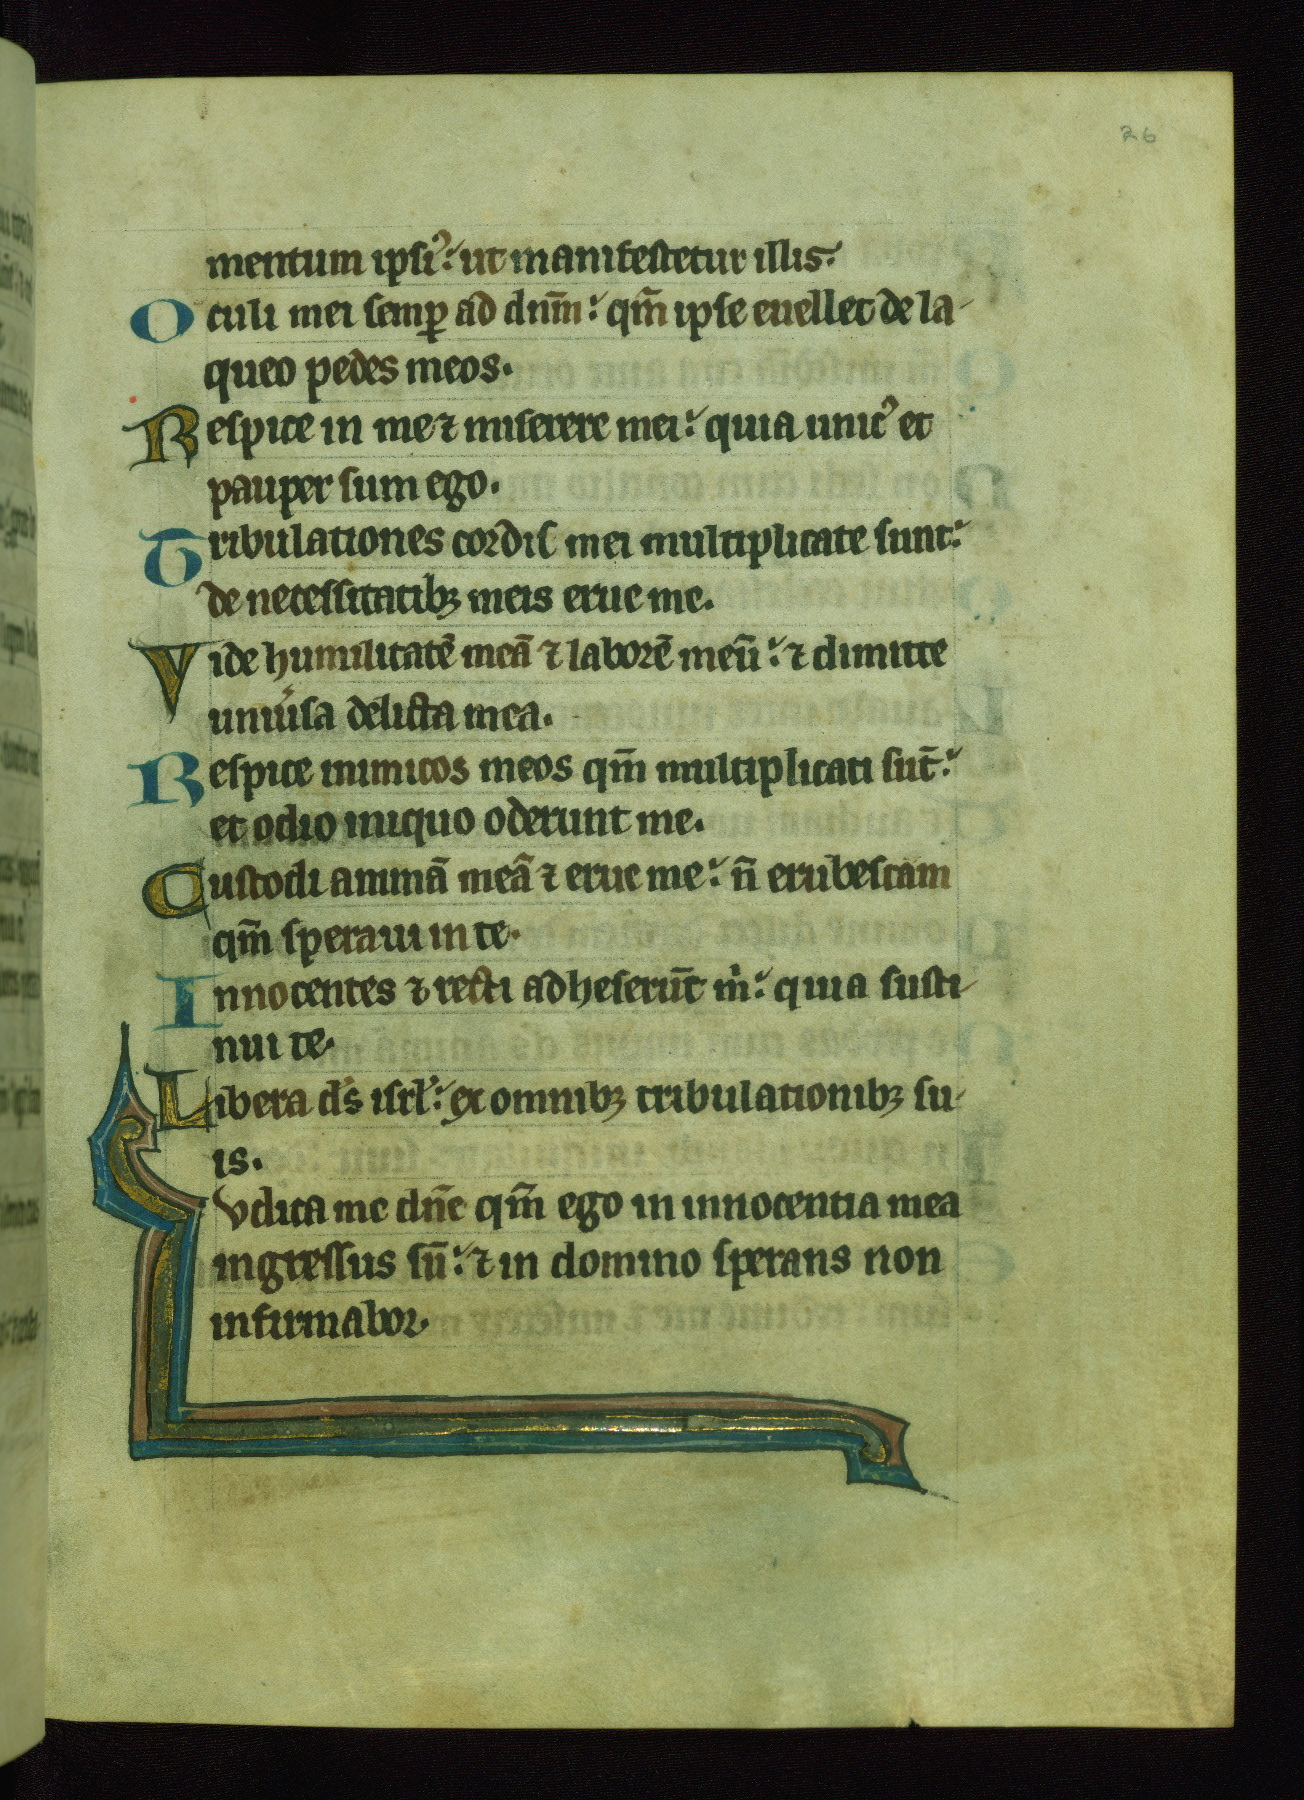 26
mentum ipsiꝰ: ut manifestetur illis:
Oculi mei semꝑ ad dn̄m: qm̄ ipse euellet de la-
queo pedes meos.
Respice in me ⁊ miserere mei: quia unicꝰ et
pauper sum ego.
Tribulationes cordis mei multiplicate sunt:
de necessitatibꝫ meis erue me.
Vide humilitatē meā ⁊ laborē meū: ⁊ dimitte
uniu̓sa delicta mea.
Respice inimicos meos qm̄ multiplicati sūt:
et odio iniquo oderunt me.
Custodi animā meā ⁊ erue me: ñ erubescam
qm̄ speraui in te.
Innocentes ⁊ recti adheserūt m̓: quia susti-
nui te.
Libera d̓s isrl̓: ex omnibꝫ tribulationibꝫ su-
is.
Vdica me dn̄e qm̄ ego in innocentia mea
ingressus sū: ⁊ in domino sperans non
infirmabor.